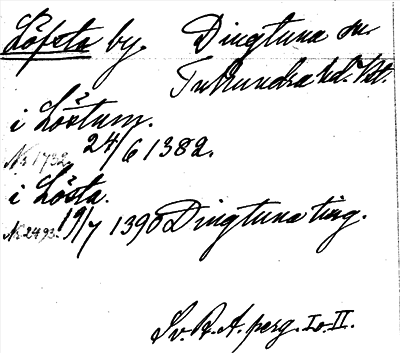 Löfsta by. Dingtuna sn.
Tuhundra hd. Vst.
i Löstum.
No 1732. 24/6 1382.
i Lösta.
No 2493. 19/7 1390 Dingtuna ting.
Sv. R. A. perg. I o. II.